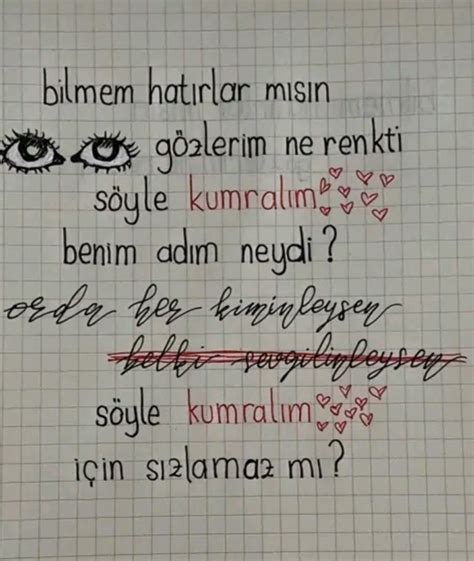 bilmem hatırlar mısın
gözlerim ne renkti
söyle kumralım
benim adım neydi?
orda her kiminleysen
belki sevgilinleysen
söyle kumralım
için sızlamaz mı?